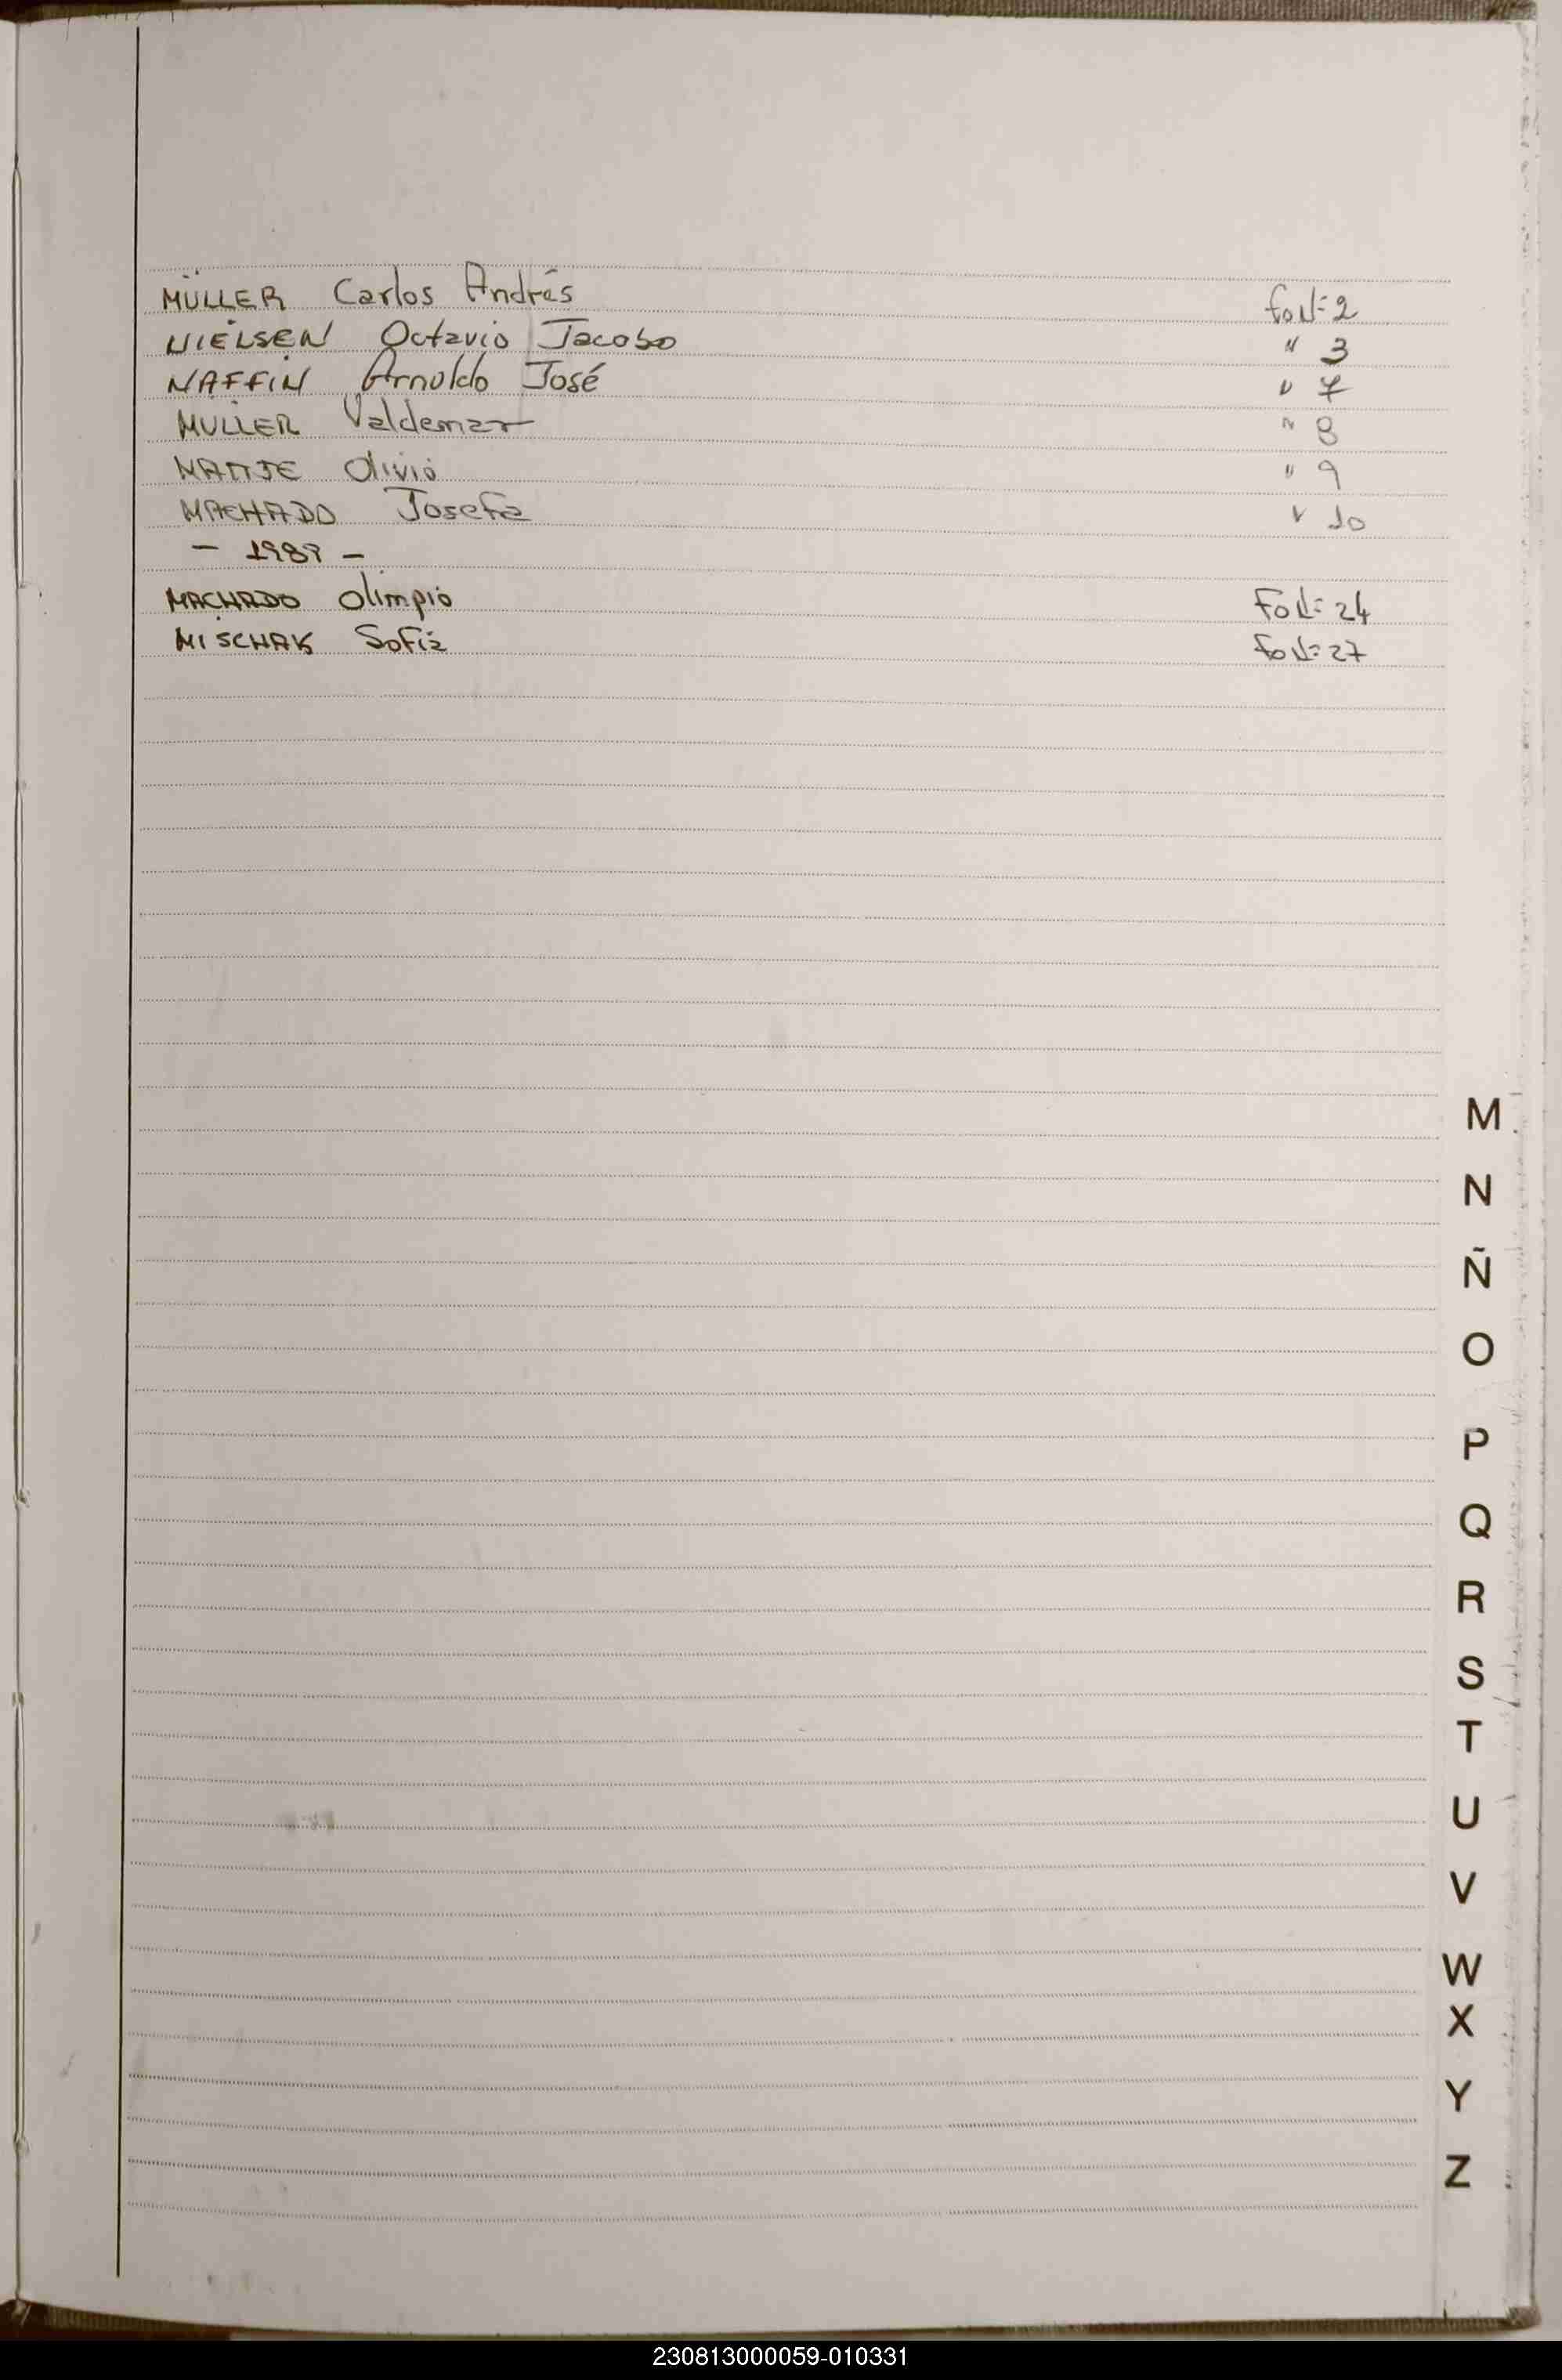 MÜLLER Carlos Andrés Fo N= 2
NIELSEN Octavio Jacobo " 3
NAFFIN Arnoldo José " 7
MULLER Valdemar " 8
Olivio " 9
MACHADO Josefa " 10
- 1989 -
MACHADO Olimpio Fo N= 24
MISCHAK Sofia Fo N= 27
M
N
Ñ
O
P
Q
R
S
T
U
V
W
X
Y
Z
230813000059-010331